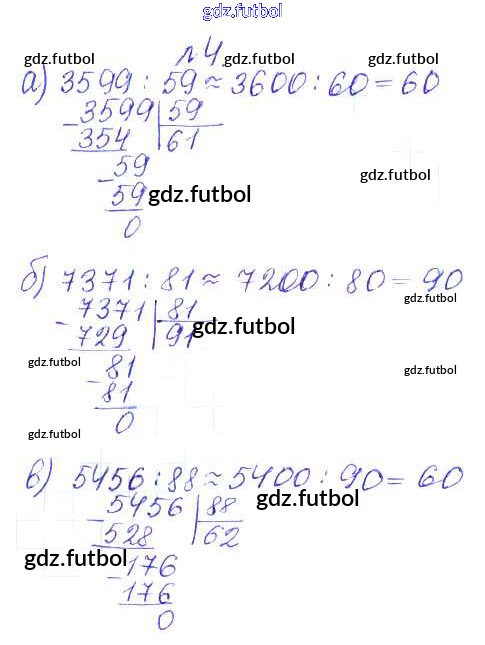 gdz.futbol
№4
gdz.futbol gdz.futbol
а) 3599 : 59 ≈ 3600 : 60 = 60
- 3599 | 59
354 | 61
- 59 gdz.futbol
59 gdz.futbol
0
б) 7371 : 81 ≈ 7200 : 80 = 90
- 7371 | 81 gdz.futbol
729 | 91 gdz.futbol
gdz.futbol - 81 gdz.futbol
81
gdz.futbol 0
в) 5456 : 88 ≈ 5400 : 90 = 60
- 5456 | 88 gdz.futbol
528 | 62
gdz.futbol - 176 gdz.futbol
176
0